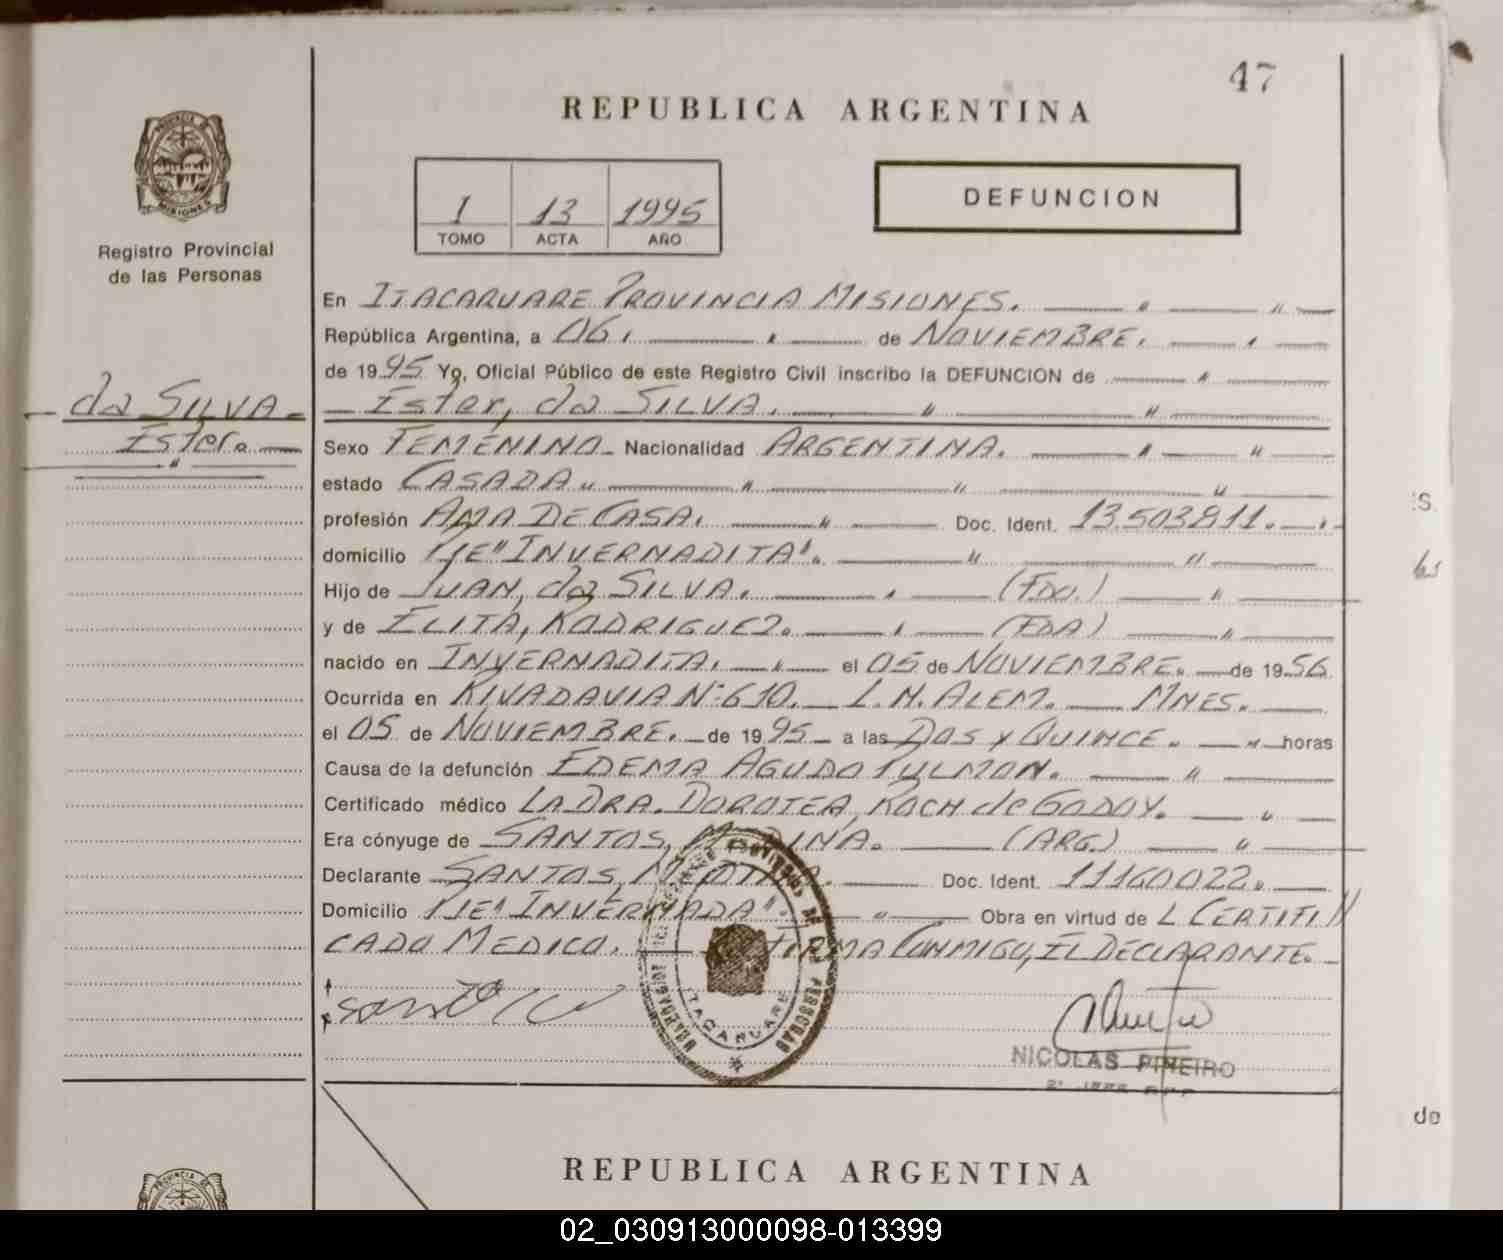 47
REPUBLICA ARGENTINA
PROVINCIA DE
MISIONES
I 13 1995
TOMO ACTA AÑO
DEFUNCION
Registro Provincial
de las Personas
da SILVA
Ester.
En ITACARUARE PROVINCIA MISIONES.
República Argentina, a 06. de NOVIEMBRE.
de 1995 Yo, Oficial Público de este Registro Civil inscribo la DEFUNCION de
Ester, da SILVA.
Sexo FEMENINO Nacionalidad ARGENTINA.
estado CASADA
profesión AMA DE CASA. Doc. Ident. 13.503.811.
domicilio PJE "INVERNADITA".
Hijo de JUAN, da SILVA. (FDO.)
y de ELITA, RODRIGUEZ. (FDA)
nacido en INVERNADITA. el 05 de NOVIEMBRE. de 1956
Ocurrida en RIVADAVIA Nº 610. L.N. ALEM. MNES.
el 05 de NOVIEMBRE. de 1995 a las DOS y QUINCE. horas
Causa de la defunción EDEMA AGUDO PULMON.
Certificado médico LA DRA. DOROTEA, KOCH de GODOY.
Era cónyuge de SANTOS, MEDINA. (ARG.)
Declarante SANTOS, MEDINA. Doc. Ident. 11160022.
Domicilio PJE "INVERNADA". Obra en virtud de L CERTIFI
CADO MEDICO. FIRMA CONMIGO, EL DECLARANTE.
ITACARUARE
NICOLAS PIÑEIRO
S.
de
REPUBLICA ARGENTINA
PROVINCIA DE
02_030913000098-013399